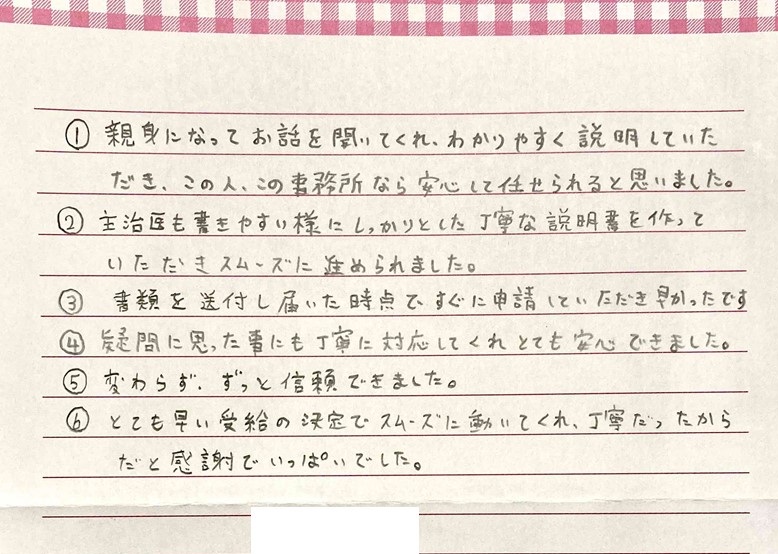 ① 親身になってお話を聞いてくれ、わかりやすく説明していた
だき、この人、この事務所なら安心して任せられると思いました。
② 主治医も書きやすい様にしっかりとした丁寧な説明書を作って
いただきスムーズに進められました。
③ 書類を送付し届いた時点ですぐに申請していただき早かったです
④ 疑問に思った事にも丁寧に対応してくれとても安心できました。
⑤ 変わらず、ずっと信頼できました。
⑥ とても早い受給の決定でスムーズに動いてくれ、丁寧だったから
だと感謝でいっぱいでした。